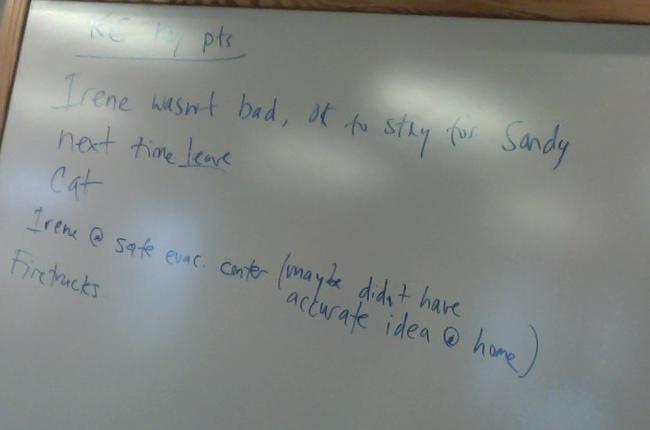 KE key pts
Irene wasn't bad, ok to stay for Sandy
next time leave
Cat
Irene @ safe evac. center (maybe didn't have
accurate idea @ home)
Firetrucks